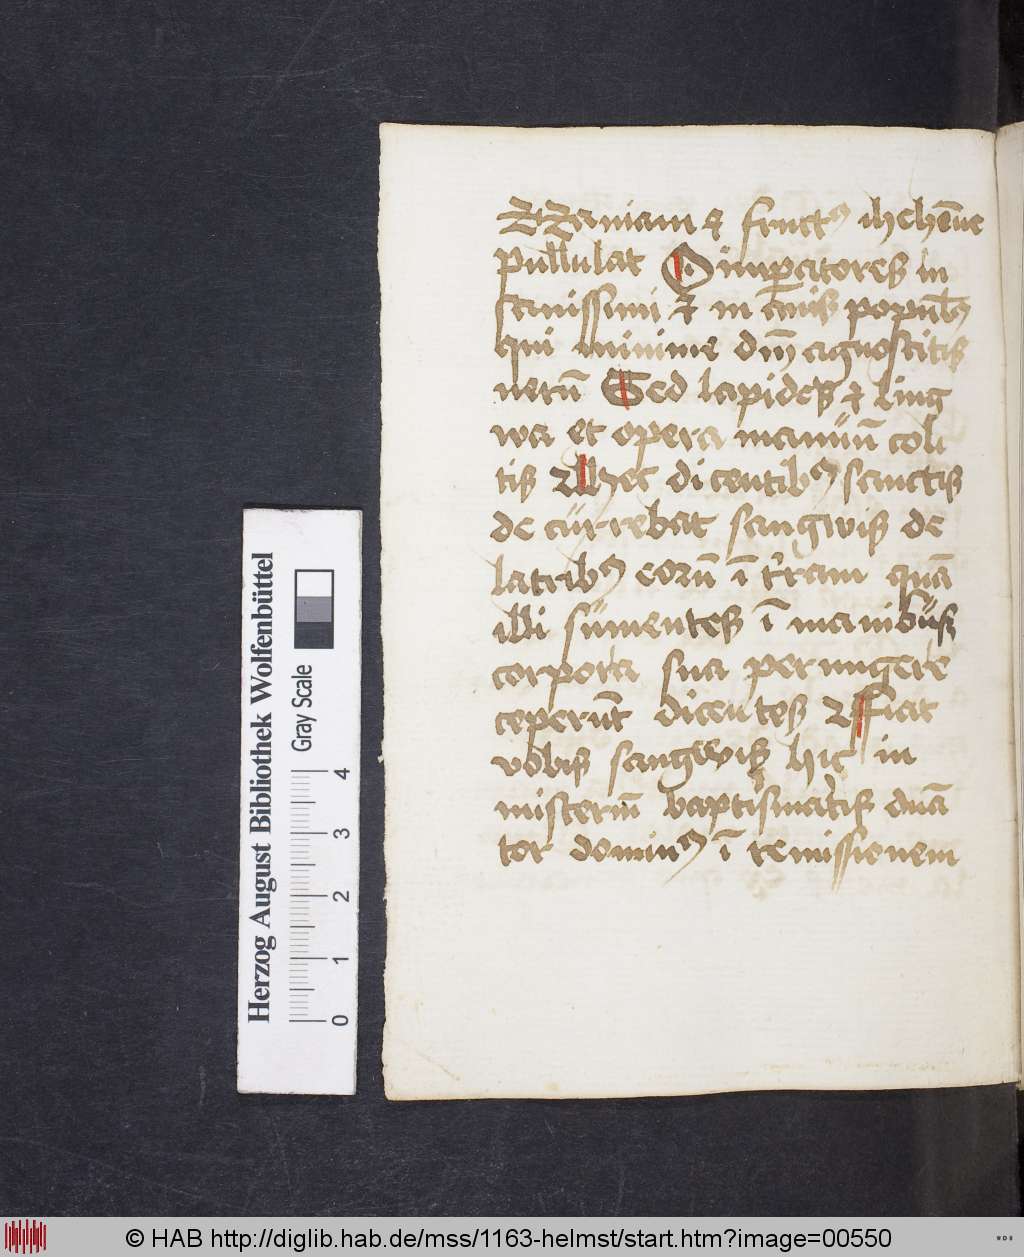 zizaniam et fructus iehēne
pullulat O impatores in
sanissimi et in amis popul9
qui minime dm̄ agnoscitis
uerū Sed lapides et ling
wa et opera manuū coli
tis Hec dicentib9 sanctis
de currebat sangwis de
laterib9 eorū ī trram quā
illi sumentes ī manibus
corpora sua perungere
ceperūt dicentes Fiat
vobis sangwis hic in
misteriū baptismatis
tor domin9 ī remissionem
Herzog August Bibliothek Wolfenbüttel
Gray Scale
0 1 2 3 4
© HAB http://diglib.hab.de/mss/1163-helmst/start.htm?image=00550